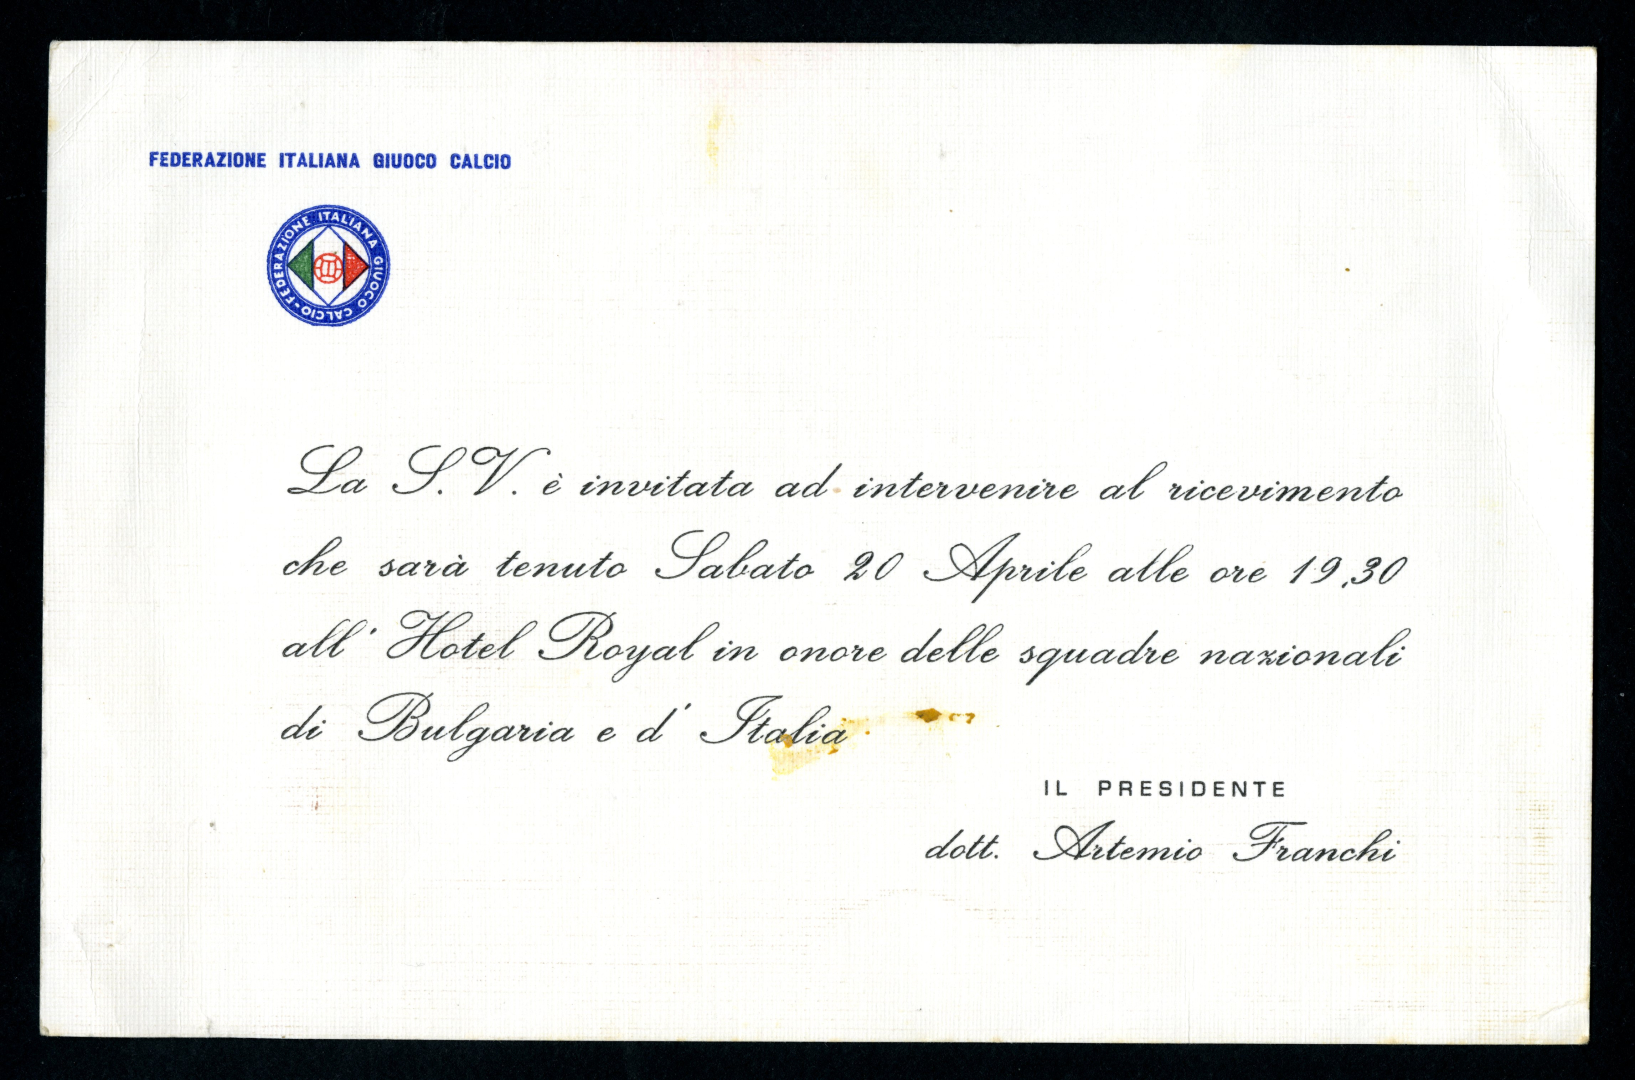 FEDERAZIONE ITALIANA GIUOCO CALCIO
FEDERAZIONE ITALIANA GIUOCO CALCIO
La S. V. è invitata ad intervenire al ricevimento
che sarà tenuto Sabato 20 Aprile alle ore 19,30
all' Hotel Royal in onore delle squadre nazionali
di Bulgaria e d' Italia
IL PRESIDENTE
dott. Artemio Franchi